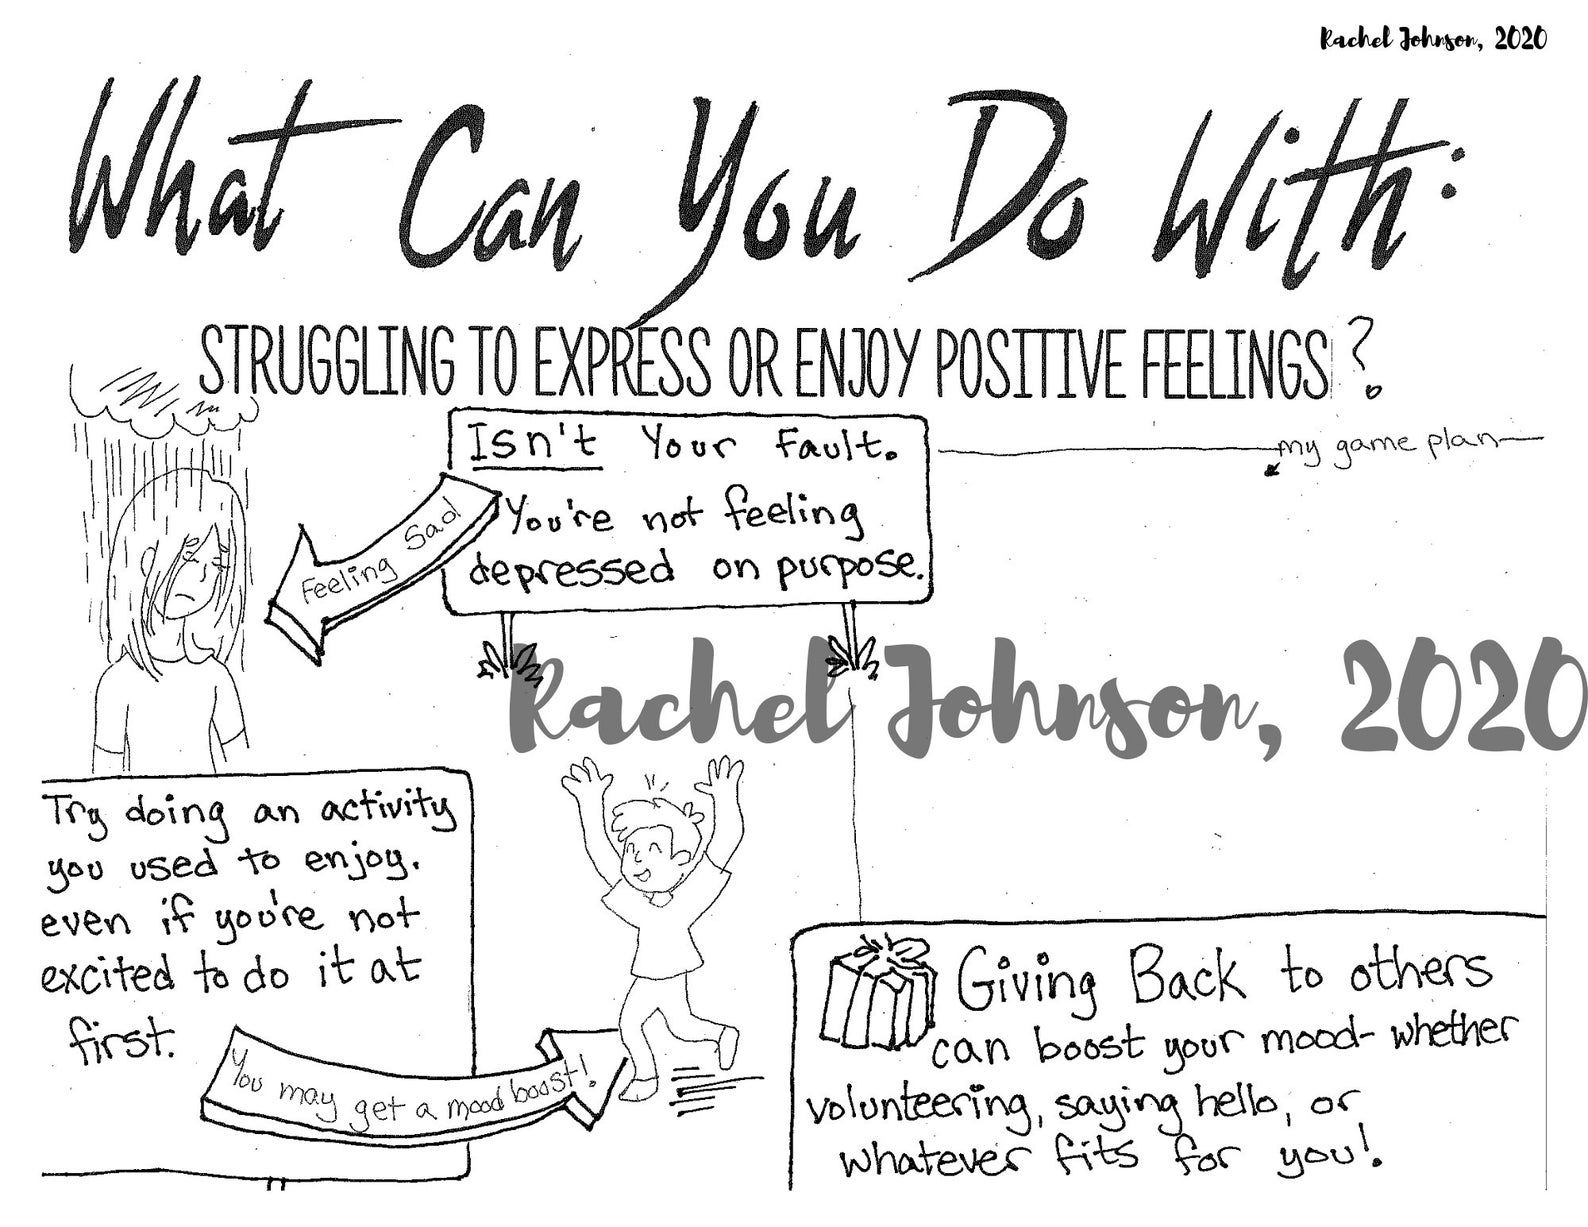 Rachel Johnson, 2020
What Can You Do With:
STRUGGLING TO EXPRESS OR ENJOY POSITIVE FEELINGS?
Isn't Your Fault.
You're not feeling
depressed on purpose.
Feeling Sad
my game plan
Rachel Johnson, 2020
Try doing an activity
you used to enjoy.
even if you're not
excited to do it at
first.
You may get a mood boost!
Giving Back to others
can boost your mood- whether
volunteering, saying hello, or
whatever fits for you!